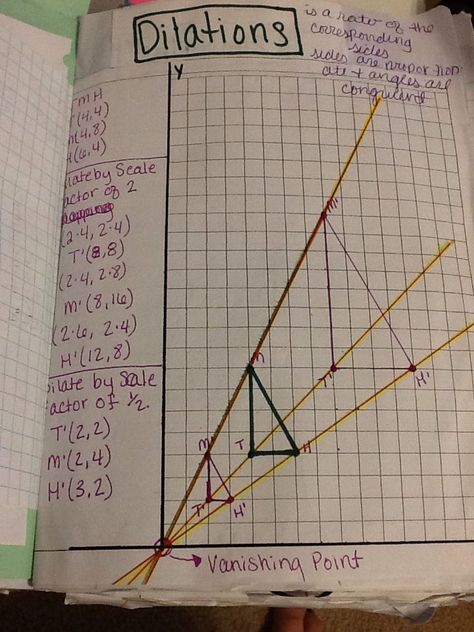 Dilations
is a ratio of the
corresponding
sides
sides are proportion
ate + angles are
congruent!
TMH
(4,4)
(4,8)
(6,4)
late by Scale
actor of 2
(2·4, 2·4)
T'(8,8)
(2·4, 2·8)
M'(8,16)
(2·6, 2·4)
H'(12,8)
ilate by Scale
actor of ½.
T'(2,2)
M'(2,4)
H'(3,2)
Y
M'
M
T'
H'
M'
T
H
T'
H'
Vanishing Point